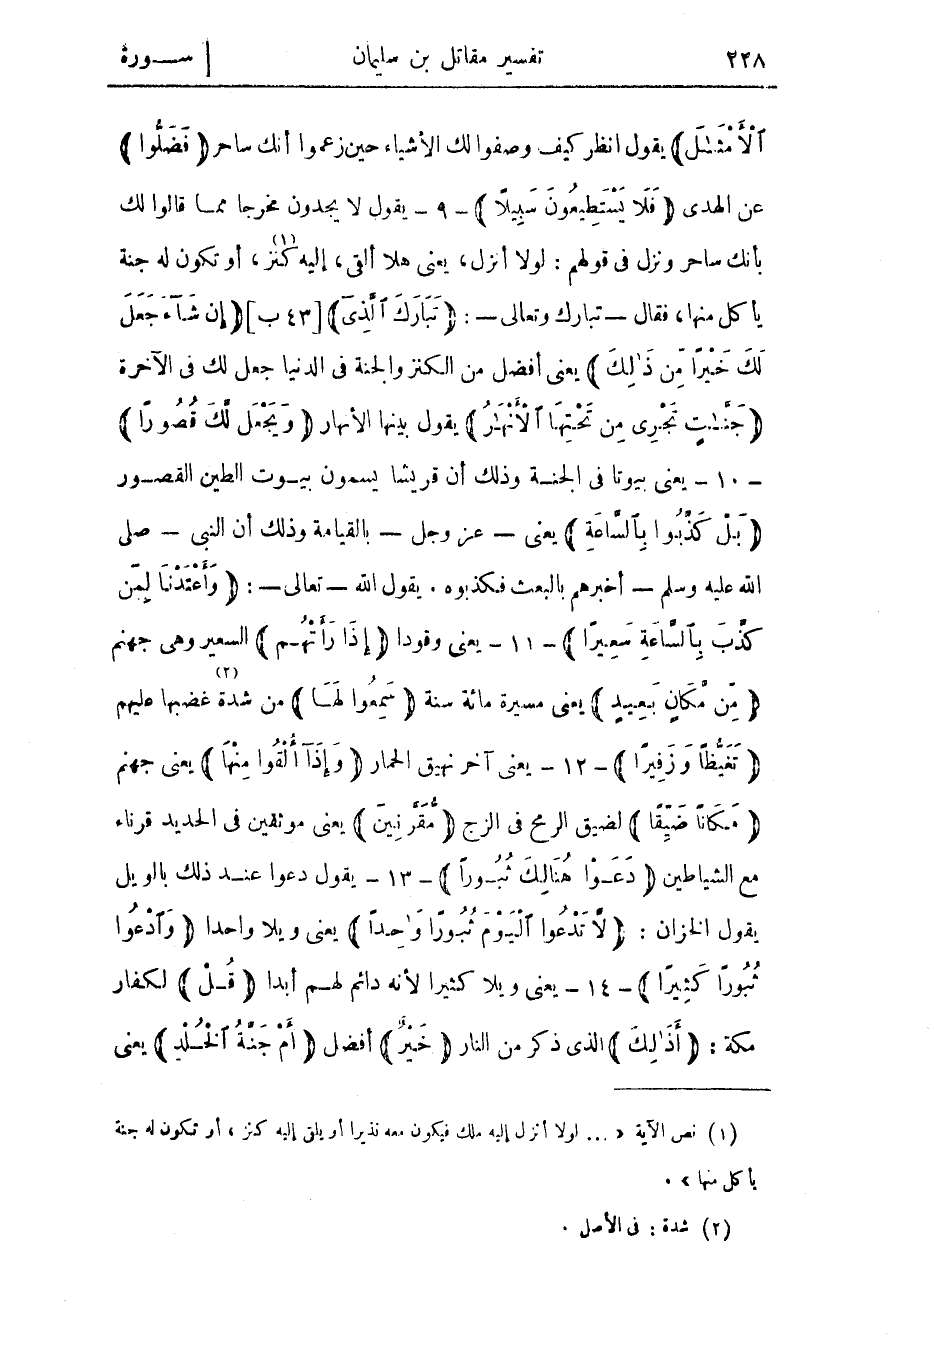 ٢٢٨ تفسير مقاتل بن سليمان سـورة
ٱلْأَمْثَـٰلَ﴾ يقول انظر كيف وصفوا لك الأشياء حين زعموا أنك ساحر ﴿ فَضَلُّوا ﴾
عن الهدى ﴿ فَلَا يَسْتَطِيعُونَ سَبِيلًا ﴾ - ٩ - يقول لا يجدون مخرجا ممـا قالوا لك
بأنك ساحر ونزل فى قولهم : لولا أنزل، يعنى هلا ألقى، إليه كنز(١)، أو تكون له جنة
يأكل منها، فقال — تبارك وتعالى — : ﴿ تَبَارَكَ ٱلَّذِىٓ﴾ [٤٣ ب] ﴿ إِن شَآءَ جَعَلَ
لَكَ خَيْرًا مِّن ذَٰلِكَ ﴾ يعنى أفضل من الكنز والجنة فى الدنيا جعل لك فى الآخرة
﴿ جَنَّـٰتٍ تَجْرِى مِن تَحْتِهَا ٱلْأَنْهَـٰرُ ﴾ يقول بينها الأنهار ﴿ وَيَجْعَل لَّكَ قُصُورًا ﴾
- ١٠ - يعنى بيوتا فى الجنـة وذلك أن قريشا يسمون بيـوت الطين القصـور
﴿ بَلْ كَذَّبُوا بِٱلسَّاعَةِ ﴾ يعنى — عز وجل — بالقيامة وذلك أن النبى — صلى
الله عليه وسلم — أخبرهم بالبعث فكذبوه . يقول الله — تعالى — : ﴿ وَأَعْتَدْنَا لِمَن
كَذَّبَ بِٱلسَّاعَةِ سَعِيرًا ﴾ - ١١ - يعنى وقودا ﴿ إِذَا رَأَتْهُـم ﴾ السعير وهى جهنم
﴿ مِّن مَّكَانٍ بَعِيدٍ ﴾ يعنى مسيرة مائة سنة ﴿ سَمِعُوا لَهَـا ﴾ من شدة(٢) غضبها عليهم
﴿ تَغَيُّظًا وَزَفِيرًا ﴾ - ١٢ - يعنى آخر نهيق الحمار ﴿ وَإِذَآ أُلْقُوا مِنْهَا ﴾ يعنى جهنم
﴿ مَكَانًا ضَيِّقًا ﴾ لضيق الرمح فى الزج ﴿ مُّقَرَّنِينَ ﴾ يعنى موثقين فى الحديد قرناء
مع الشياطين ﴿ دَعَـوْا هُنَالِكَ ثُبُـورًا ﴾ - ١٣ - يقول دعوا عنـد ذلك بالويل
يقول الخزان : ﴿ لَّا تَدْعُوا ٱلْيَوْمَ ثُبُورًا وَٰحِدًا ﴾ يعنى ويلا واحدا ﴿ وَٱدْعُوا
ثُبُورًا كَثِيرًا ﴾ - ١٤ - يعنى ويلا كثيرا لأنه دائم لهـم أبدا ﴿ قُـلْ ﴾ لكفار
مكة : ﴿ أَذَٰلِكَ ﴾ الذى ذكر من النار ﴿ خَيْرٌ ﴾ أفضل ﴿ أَمْ جَنَّةُ ٱلْخُـلْدِ ﴾ يعنى
(١) نص الآية « ... لولا أنزل إليه ملك فيكون معه نذيرا أو يلقى إليه كنز ، أو تكون له جنة
يأكل منها » .
(٢) شدة : فى الأصل .